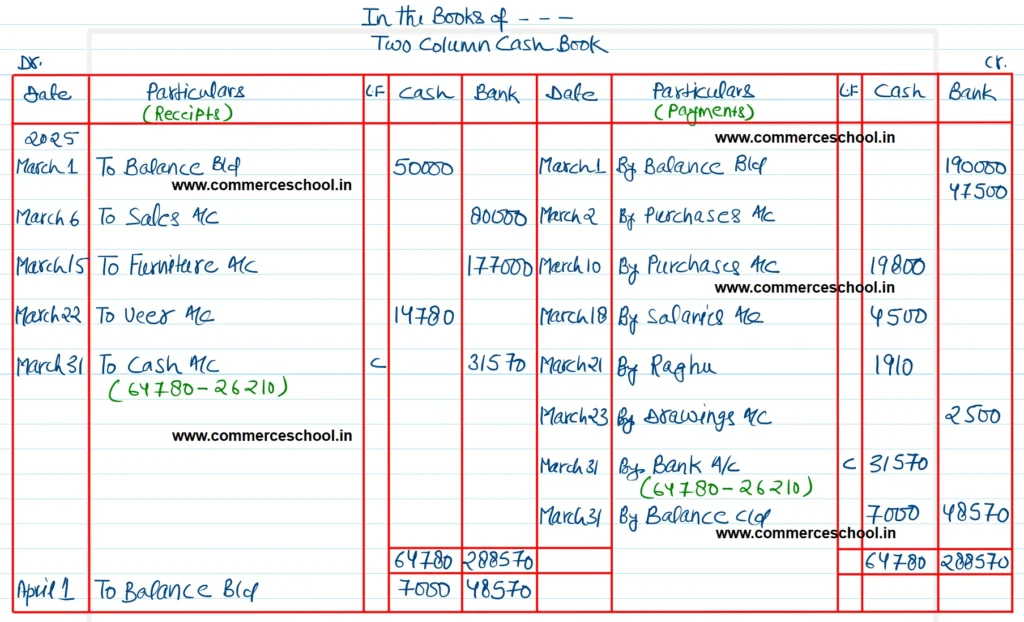 In the Books of - - -
Two Column Cash Book
Dr. Cr.
Date Particulars LF Cash Bank Date Particulars LF Cash Bank
(Receipts) (Payments)
2025 www.commerceschool.in
March 1 To Balance B/d 50000 March 1 By Balance B/d 190000
www.commerceschool.in 47500
March 6 To Sales A/c 80000 March 2 By Purchases A/c
March 15 To Furniture A/c 177000 March 10 By Purchases A/c 19800
www.commerceschool.in
March 22 To Veer A/c 14780 March 18 By Salaries A/c 4500
March 31 To Cash A/c C 31570 March 21 By Raghu 1910
(64780-26210)
March 23 By Drawings A/c 2500
www.commerceschool.in
March 31 By Bank A/c C 31570
(64780-26210)
March 31 By Balance c/d 7000 48570
www.commerceschool.in
64780 288570 64780 288570
April 1 To Balance B/d 7000 48570